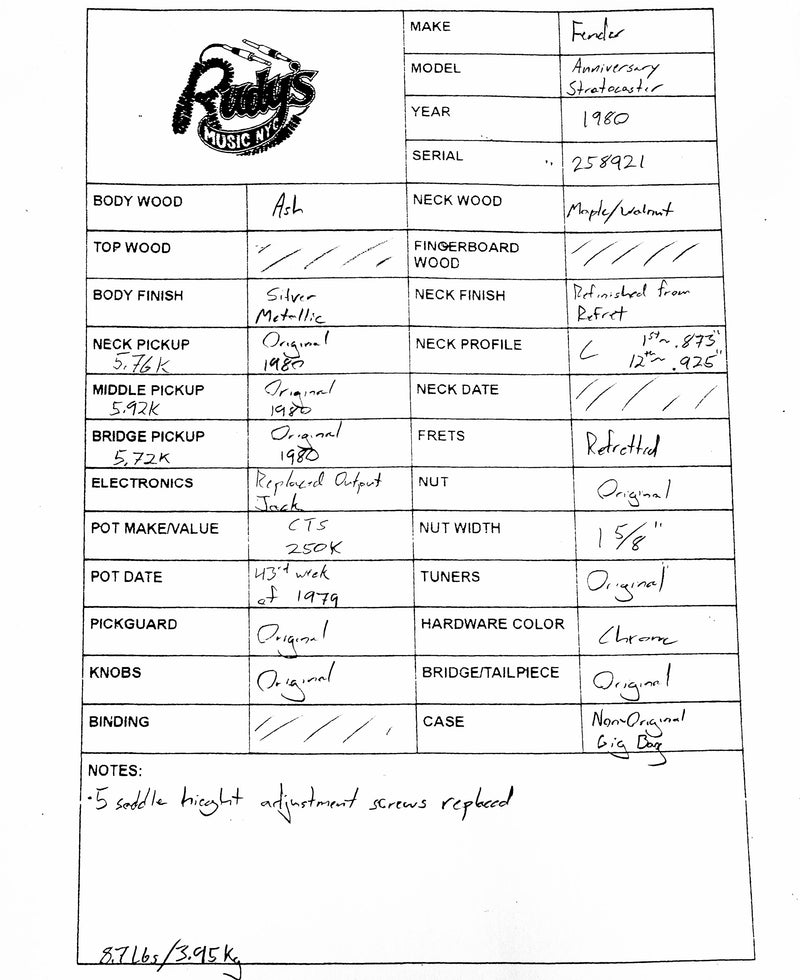 Rudy's
MUSIC NYC
MAKE Fender
MODEL Anniversary
Stratocaster
YEAR 1980
SERIAL 258921
BODY WOOD Ash
NECK WOOD Maple/Walnut
TOP WOOD
FINGERBOARD
WOOD
BODY FINISH Silver
Metallic
NECK FINISH Refinished from
Refret
NECK PICKUP Original
5.76K 1980
NECK PROFILE C 1st ~ .873"
12th ~ .925"
MIDDLE PICKUP Original
5.92K 1980
NECK DATE
BRIDGE PICKUP Original
5.72K 1980
FRETS Refretted
ELECTRONICS Replaced Output
Jack
NUT Original
POT MAKE/VALUE CTS
250K
NUT WIDTH 1 5/8"
POT DATE 43rd week
of 1979
TUNERS Original
PICKGUARD Original
HARDWARE COLOR Chrome
KNOBS Original
BRIDGE/TAILPIECE Original
BINDING
CASE Non-Original
Gig Bag
NOTES:
·5 saddle hieght adjustment screws replaced
8.7 Lbs/3.95 Kg